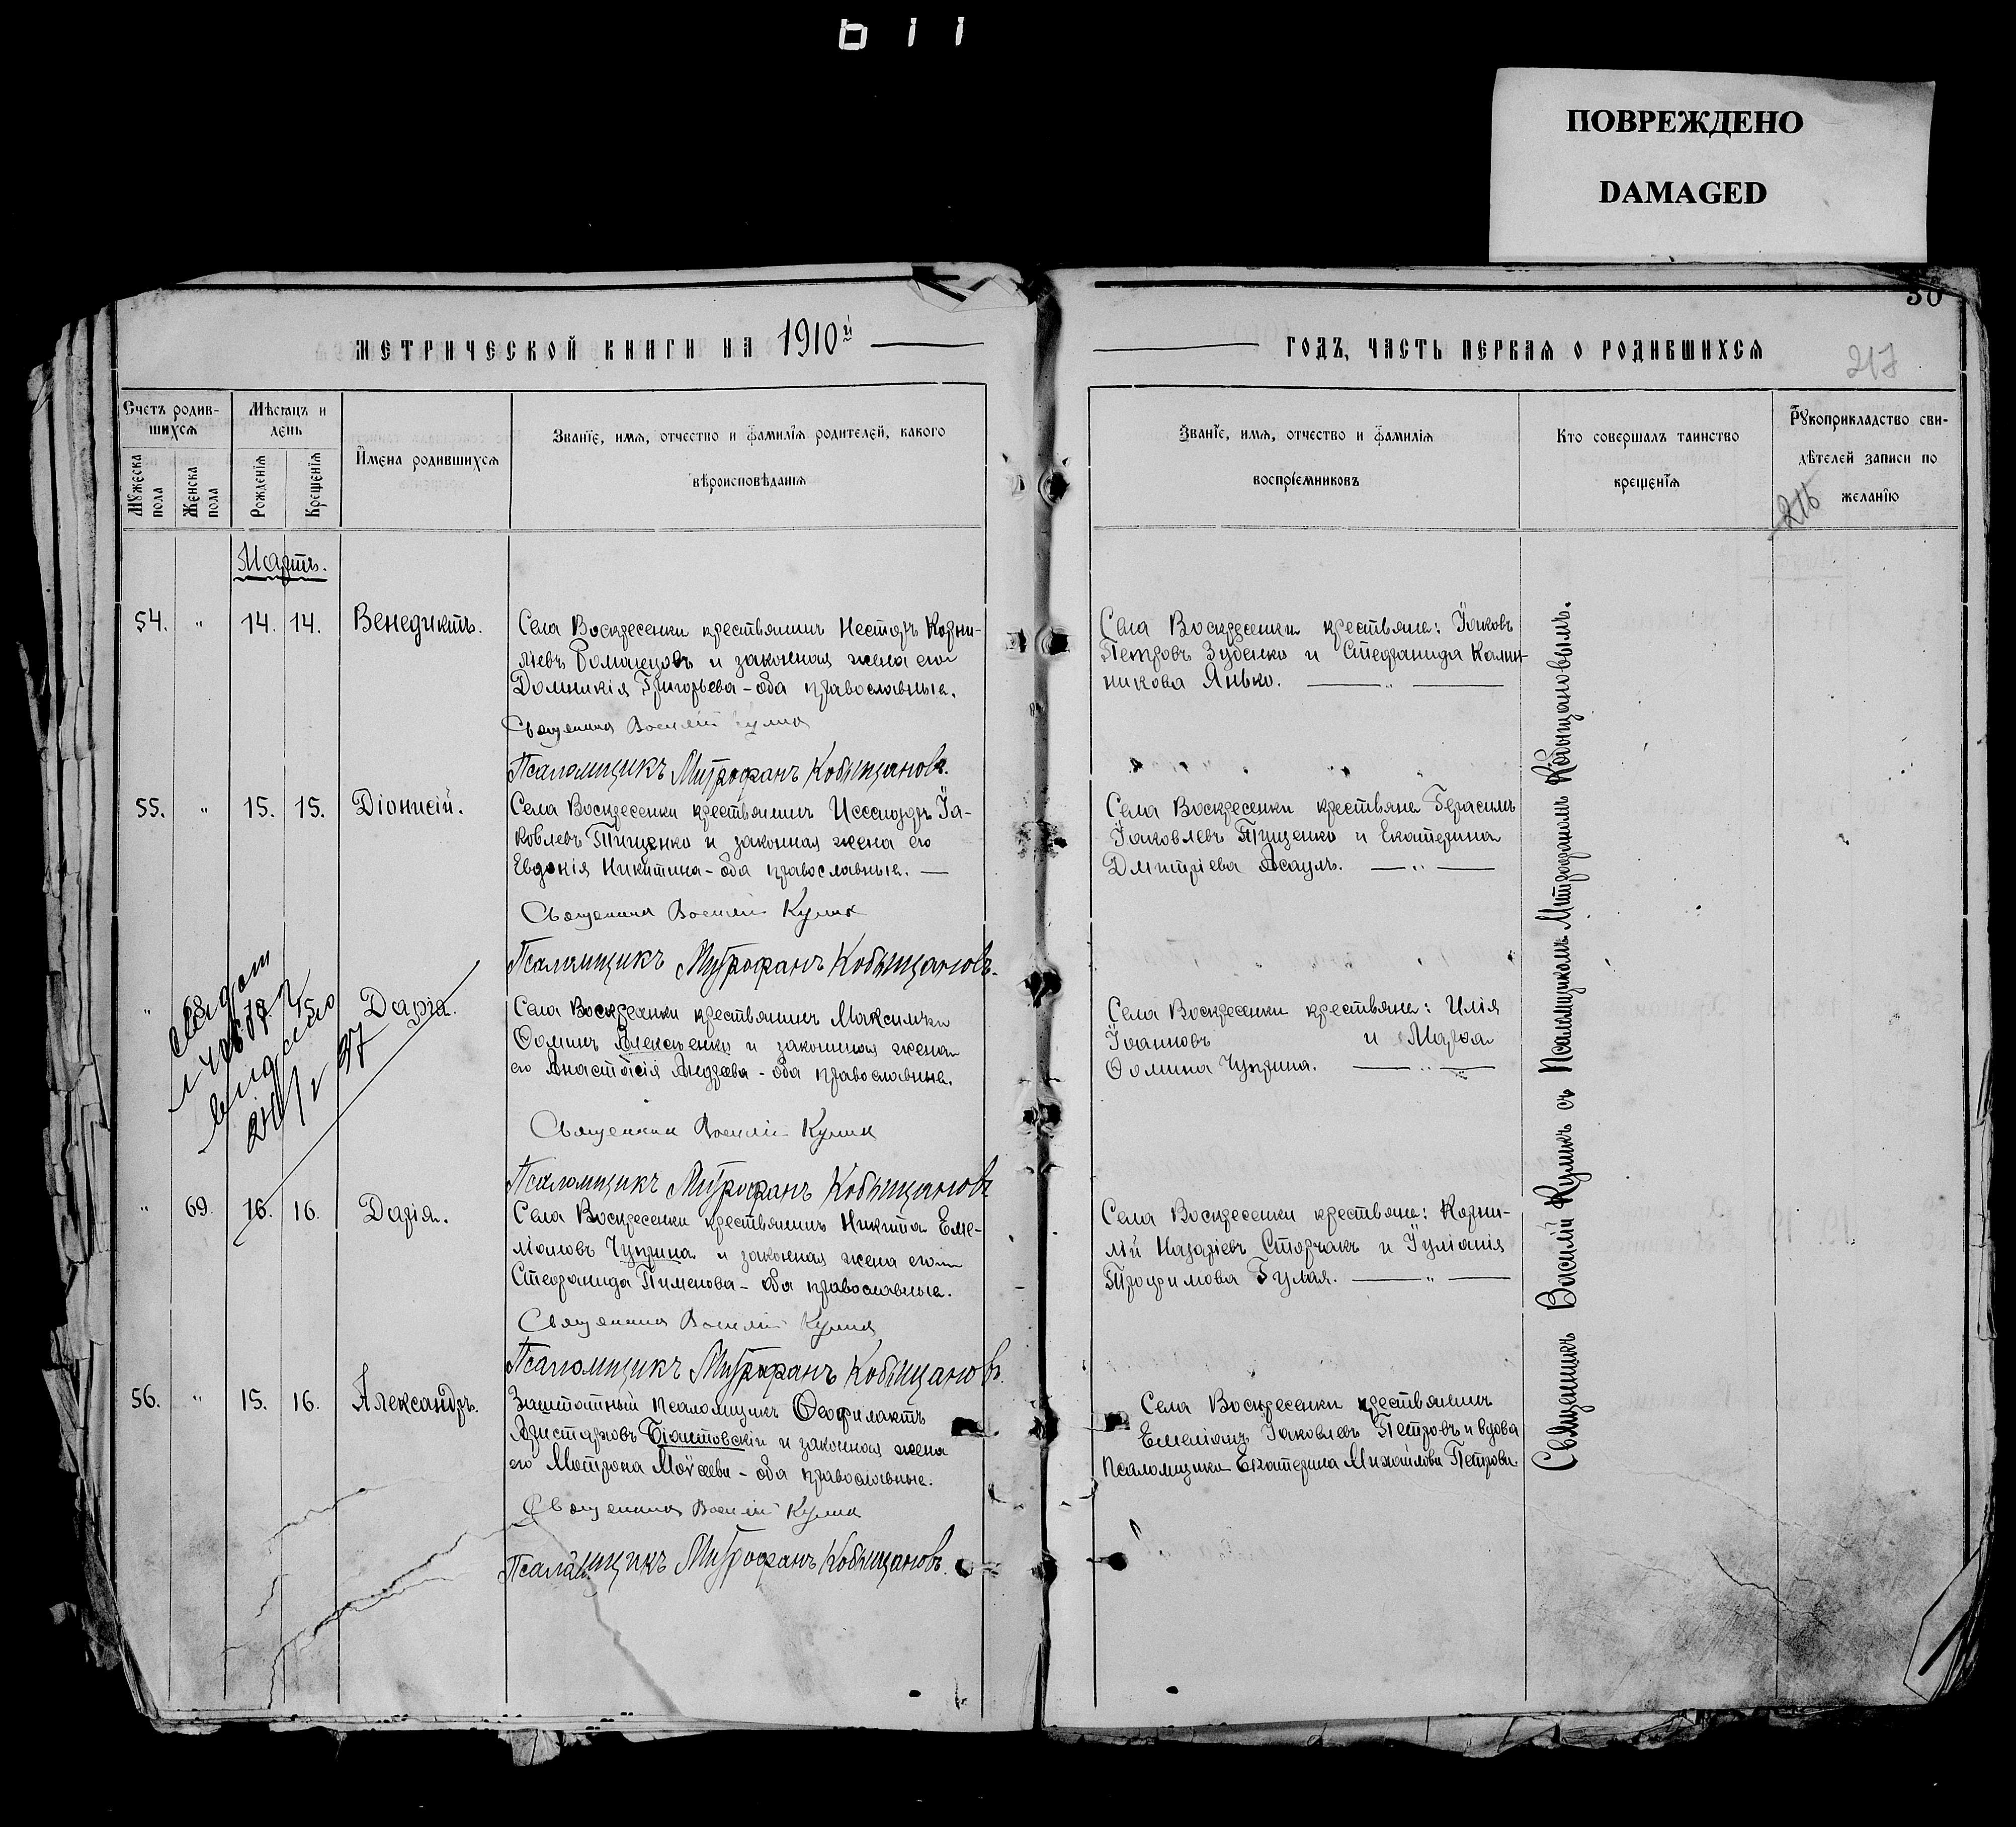 611
ПОВРЕЖДЕНО
DAMAGED
30
МЕТРИЧЕСКОЙ КНИГИ НА 1910й
ГОДЪ, ЧАСТЬ ПЕРВАЯ О РОДИВШИХСЯ
217
Счетъ родив-
шихся
Мужеска пола
Женска пола
Мѣсяцъ и
день
Рожденія
Крещенія
Имена родившихся
Званіе, имя, отчество и фамилія родителей, какого
вѣроисповѣданія
Званіе, имя, отчество и фамилія
воспріемниковъ
Кто совершалъ таинство
крещенія
Рукоприкладство сви-
дѣтелей записи по
желанію
216
Мартъ.
54. " 14. 14. Венедиктъ.
Села Воскресенки крестьянинъ Несторъ Корни-
ліевъ и законная жена его
Домникія Григорьева - оба православные.
Священникъ Василій Куликъ
Псаломщикъ Митрофанъ Кобыщановъ.
Села Воскресенки крестьяне: Іаковъ
Петровъ Зубенко и Стефанида Калин-
никова Янько.
55. " 15. 15. Діонисій.
Села Воскресенки крестьянинъ Іа-
ковлевъ Тищенко и законная жена его
Евдокія Никитина - оба православные.
Священникъ Василій Куликъ
Псаломщикъ Митрофанъ Кобыщановъ.
Села Воскресенки крестьяне Герасимъ
Іаковлевъ Тищенко и Екатерина
Дмитріева Осаулъ.
" 68 15 Дарія.
Села Воскресенки крестьянинъ
Ѳоминъ Алексѣенко и законная жена
его Анастасія Андреева - оба православные.
Священникъ Василій Куликъ
Псаломщикъ Митрофанъ Кобыщановъ
Села Воскресенки крестьяне: Илія
Іоанновъ и Марѳа
Ѳомина Чуприна.
" 69. 16. 16. Дарія.
Села Воскресенки крестьянинъ Никита Еме-
ліановъ Чуприна и законная жена его
Стефанида Пименова - оба православные.
Священникъ Василій Куликъ
Псаломщикъ Митрофанъ Кобыщановъ.
Села Воскресенки крестьяне: Корни-
лій Назаріевъ Сторчакъ и Іуліанія
Трофимова Гулая.
56. " 15. 16. Александръ.
Заштатный псаломщикъ Ѳеофилактъ
Аристарховъ и законная жена
его Матрона Моѵсеева - оба православные.
Священникъ Василій Куликъ
Псаломщикъ Митрофанъ Кобыщановъ.
Села Воскресенки крестьянинъ
Емеліанъ Іаковлевъ Петровъ и вдова
псаломщика Екатерина Михайлова Петрова.
Священникъ Василій Куликъ съ Псаломщикомъ Митрофаномъ Кобыщановымъ.